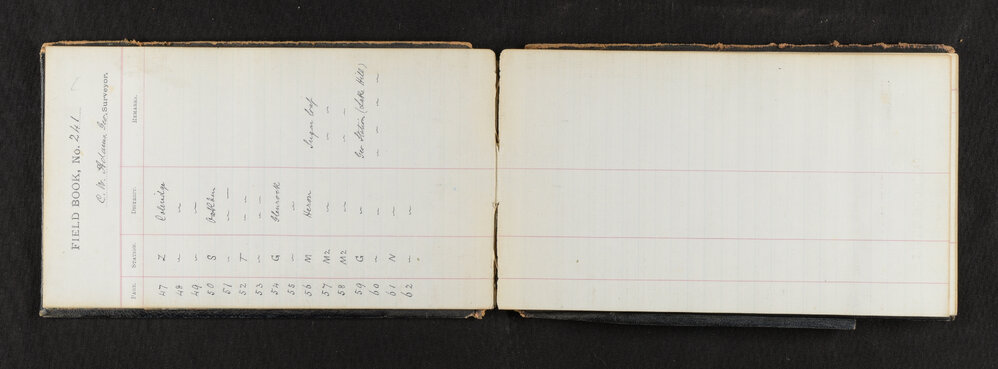 FIELD BOOK, No. 241
C. W. Adams Geo. Surveyor.
PAGE. STATION. DISTRICT. REMARKS.
47 Z Coleridge
48 " "
49 " "
50 S
51 " " "
52 T " "
53 " " "
54 G Glenrook
55 " "
56 M Heron Sugar Loaf
57 M2 " " "
58 M2 " " "
59 G " Geo Station (Lake Hill)
60 " " " " " "
61 N "
62 " "